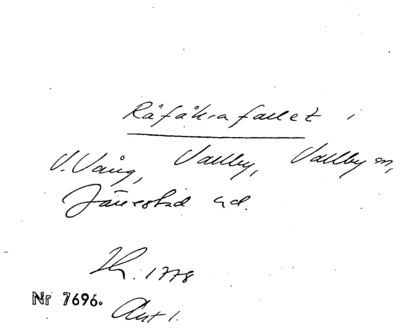 Råfåkrafallet i
V. Vång, Vallby, Vallby sn,
Järrestad hd.
Th. 1778
Nr 7696.
Akt 1.